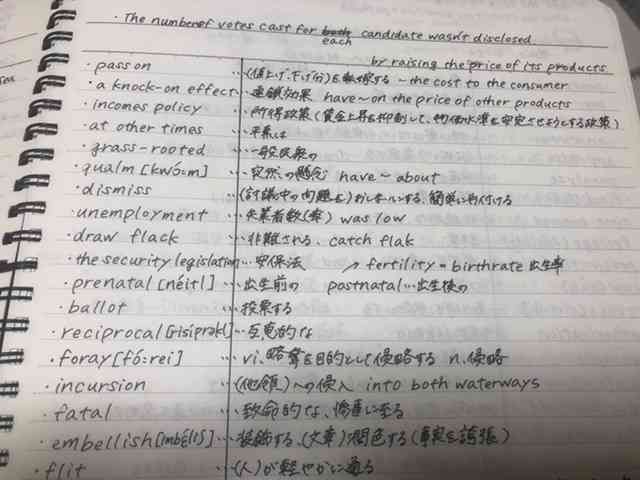 ・The number of votes cast for each candidate wasn't disclosed
by raising the price of its products
・pass on …(値上げ、下げ分)を転嫁する ~ the cost to the consumer
・a knock-on effect…連鎖効果 have ~ on the price of other products
・incomes policy …所得政策(賃金上昇を抑制して、物価水準を安定させようとする政策)
・at other times …平素は
・grass-rooted …一般民衆の
・qualm [kwɔ́ːm] …突然の懸念 have ~ about
・dismiss …(討議中の問題を)
・unemployment …失業者数(率) was low
・draw flack …非難される、catch flak
・the security legislation…安保法 ↗ fertility = birthrate 出生率
・prenatal [néitl] …出生前の postnatal…出生後の
・ballot …投票する
・reciprocal[risíprəkl]…互恵的な
・foray [fɔ́ːrei] …vi.略奪を目的として侵略する n.侵略
・incursion …(他領)への侵入 into both waterways
・fatal …致命的な、
・embellish[imbéliʃ]…装飾する、(文章)潤色する(事実を誇張)
・flit …(人)が軽やかに通る